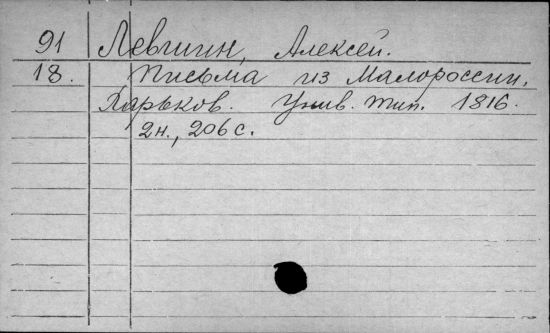 91 Левшин, Алексей.
18. Письма из Малороссии.
Харьков. Унив. тип. 1816.
2н., 206 с.